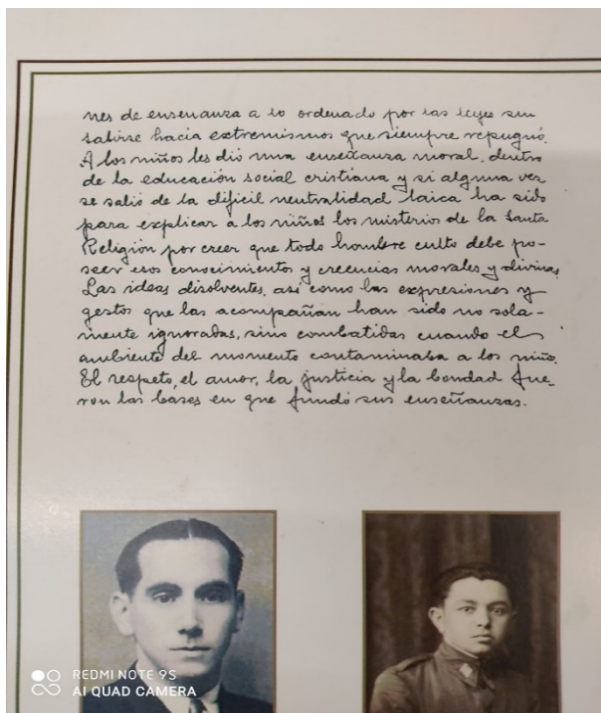 nes de enseñanza a lo ordenado por las leyes sin
salirse hacia extremismos que siempre repugnó.
A los niños les dio una enseñanza moral, dentro
de la educación social cristiana y si alguna vez
se salió de la difícil neutralidad laica ha sido
para explicar a los niños los misterios de la Santa
Religión por creer que todo hombre culto debe po-
seer esos conocimientos y creencias morales y divinas.
Las ideas disolventes, así como las expresiones y
gestos que las acompañan han sido no sola-
mente ignoradas, sino combatidas cuando el
ambiente del momento contaminaba a los niños.
El respeto, el amor, la justicia y la bondad fue-
ron las bases en que fundó sus enseñanzas.
REDMI NOTE 9S
AI QUAD CAMERA